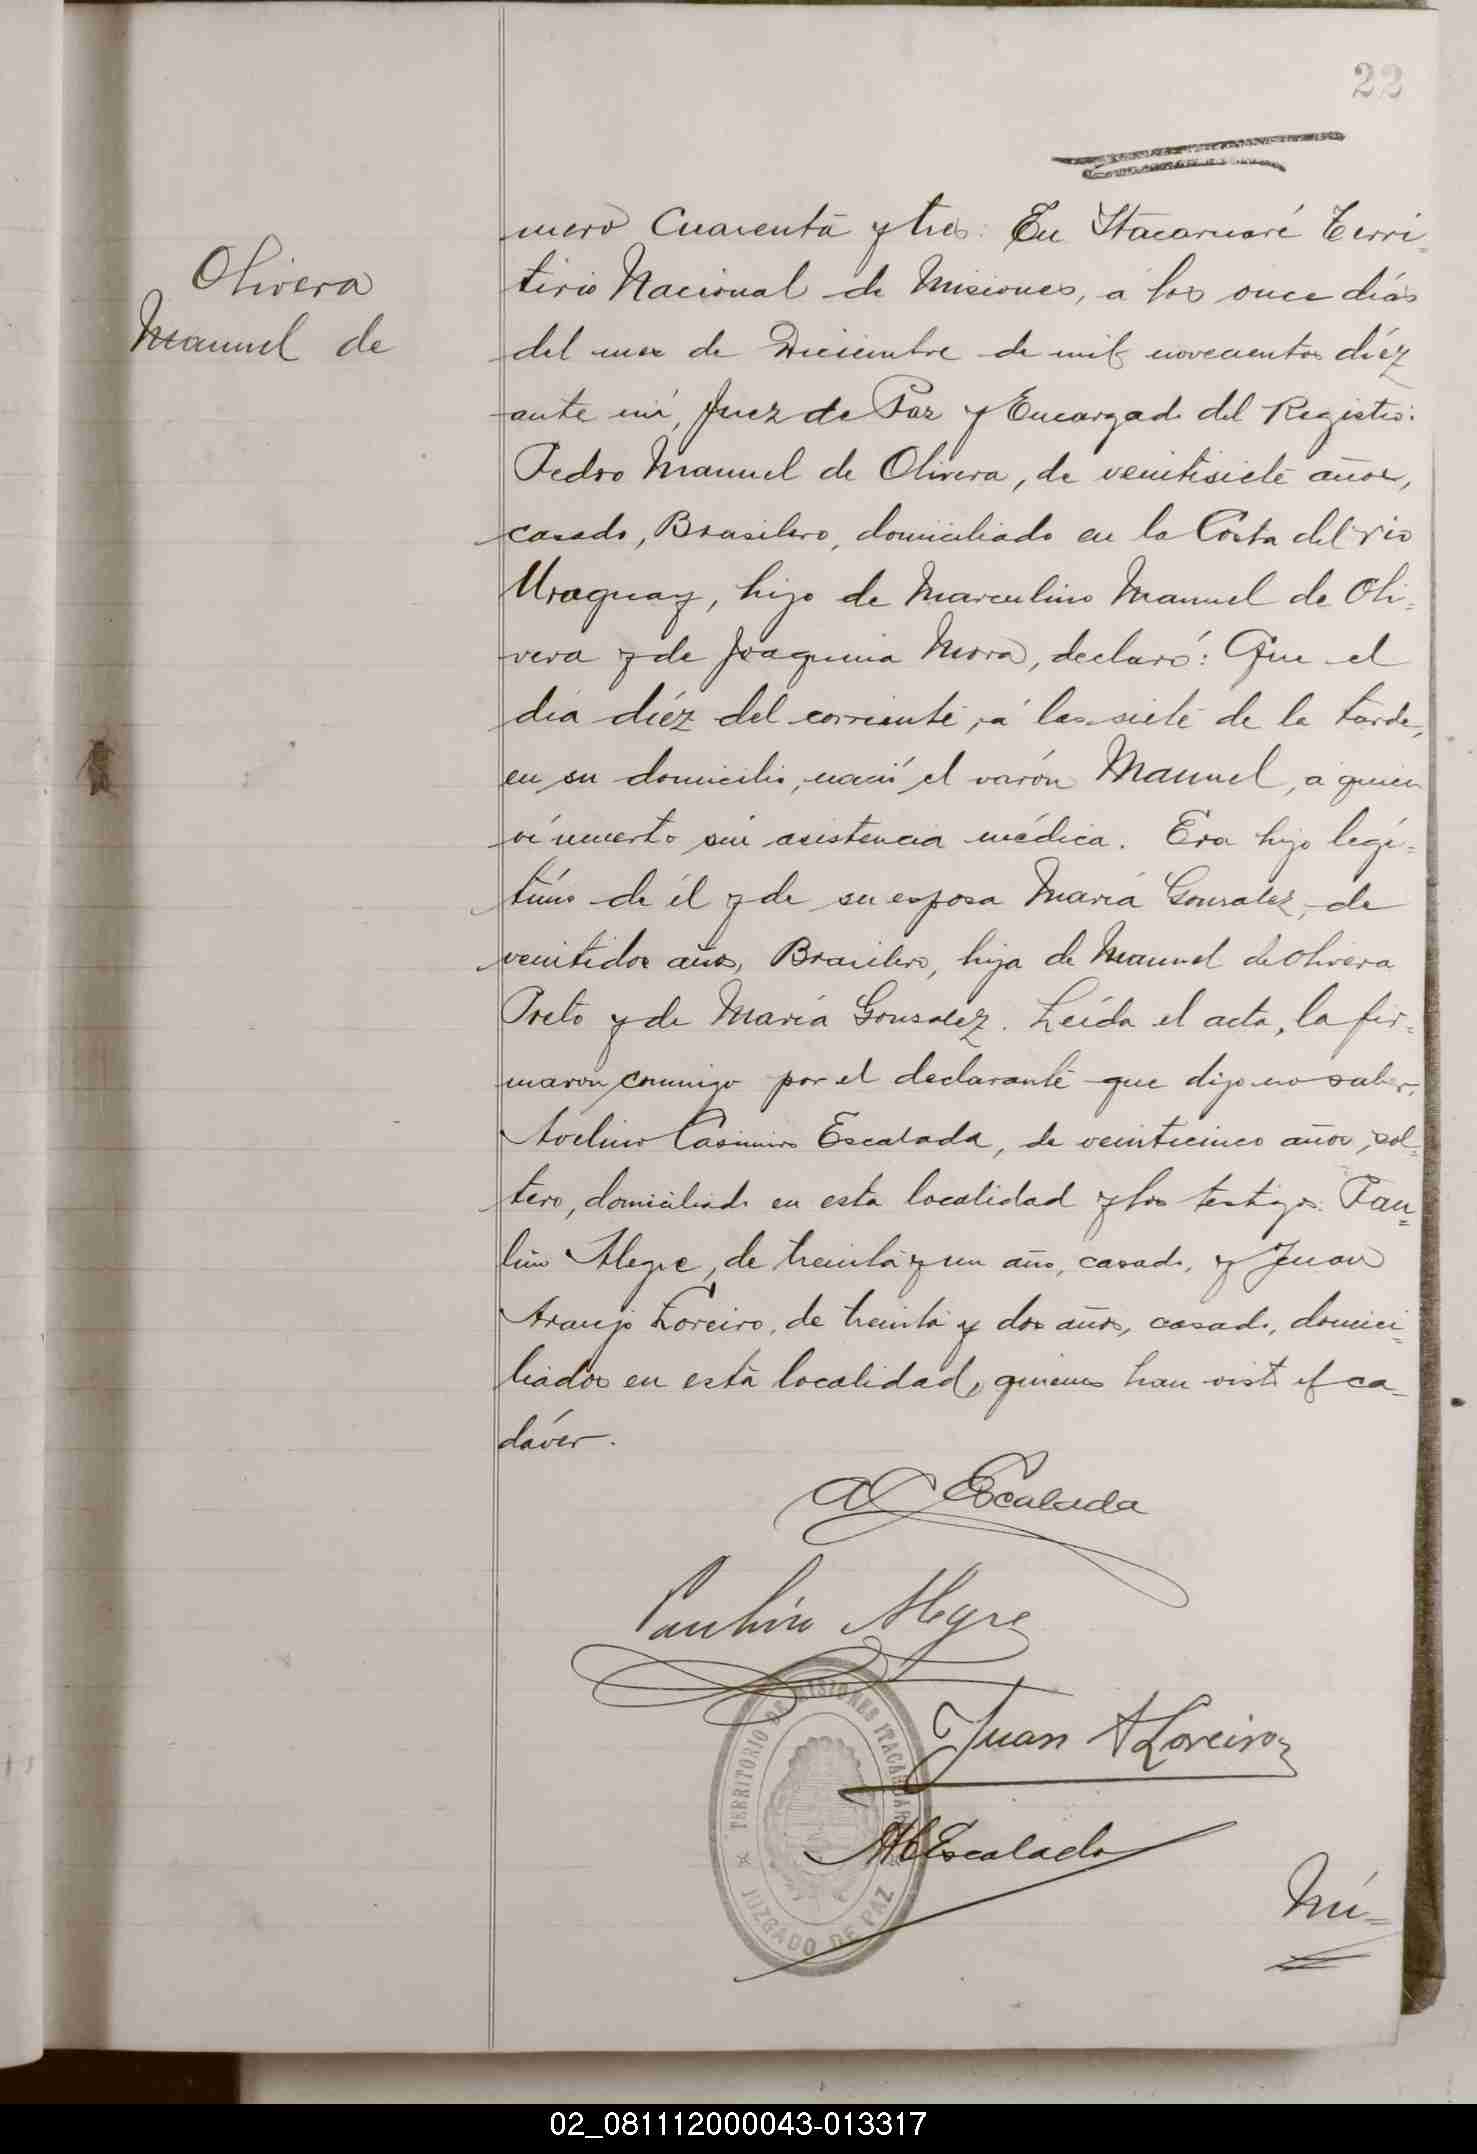 22
Olivera
Manuel de
mero Cuarenta y tres: En Itacaruaré Terri-
tirio Nacional de Misiones, a los once días
del mes de Diciembre de mil novecientos diéz
ante mí, Juez de Paz y Encargado del Registro:
Pedro Manuel de Olivera, de veintisiete años,
casado, Brasilero, domiciliado en la Costa del rio
Uruguay, hijo de Marculino Manuel de Oli-
vera y de Joaquina Mora, declaró: Que el
día diéz del corriente, á las siete de la tarde,
en su domicilio, nació el varón Manuel, a quien
ví muerto sin asistencia médica. Era hijo legí-
timo de él y de su esposa María Gonzalez, de
veintidos años, Brasilero, hija de Manuel de Olivera
Preto y de María Gonzalez. Leída el acta, la fir-
maron conmigo por el declarante que dijo no saber,
Avelino Casimiro Escalada, de veinticinco años, sol-
tero, domiciliado en esta localidad y los testigos: Pau-
lino Alegre, de treinta y un año, casado, y Juan
Araujo Loreiro, de treinta y dos años, casado, domici-
liados en esta localidad, quienes han visto el ca-
dáver.
AC Escalada
Paulino Alegre
Juan A Loreiro
Escalada
TERRITORIO DE MISIONES ITACARUARÉ
JUZGADO DE PAZ
Nú-
02_081112000043-013317